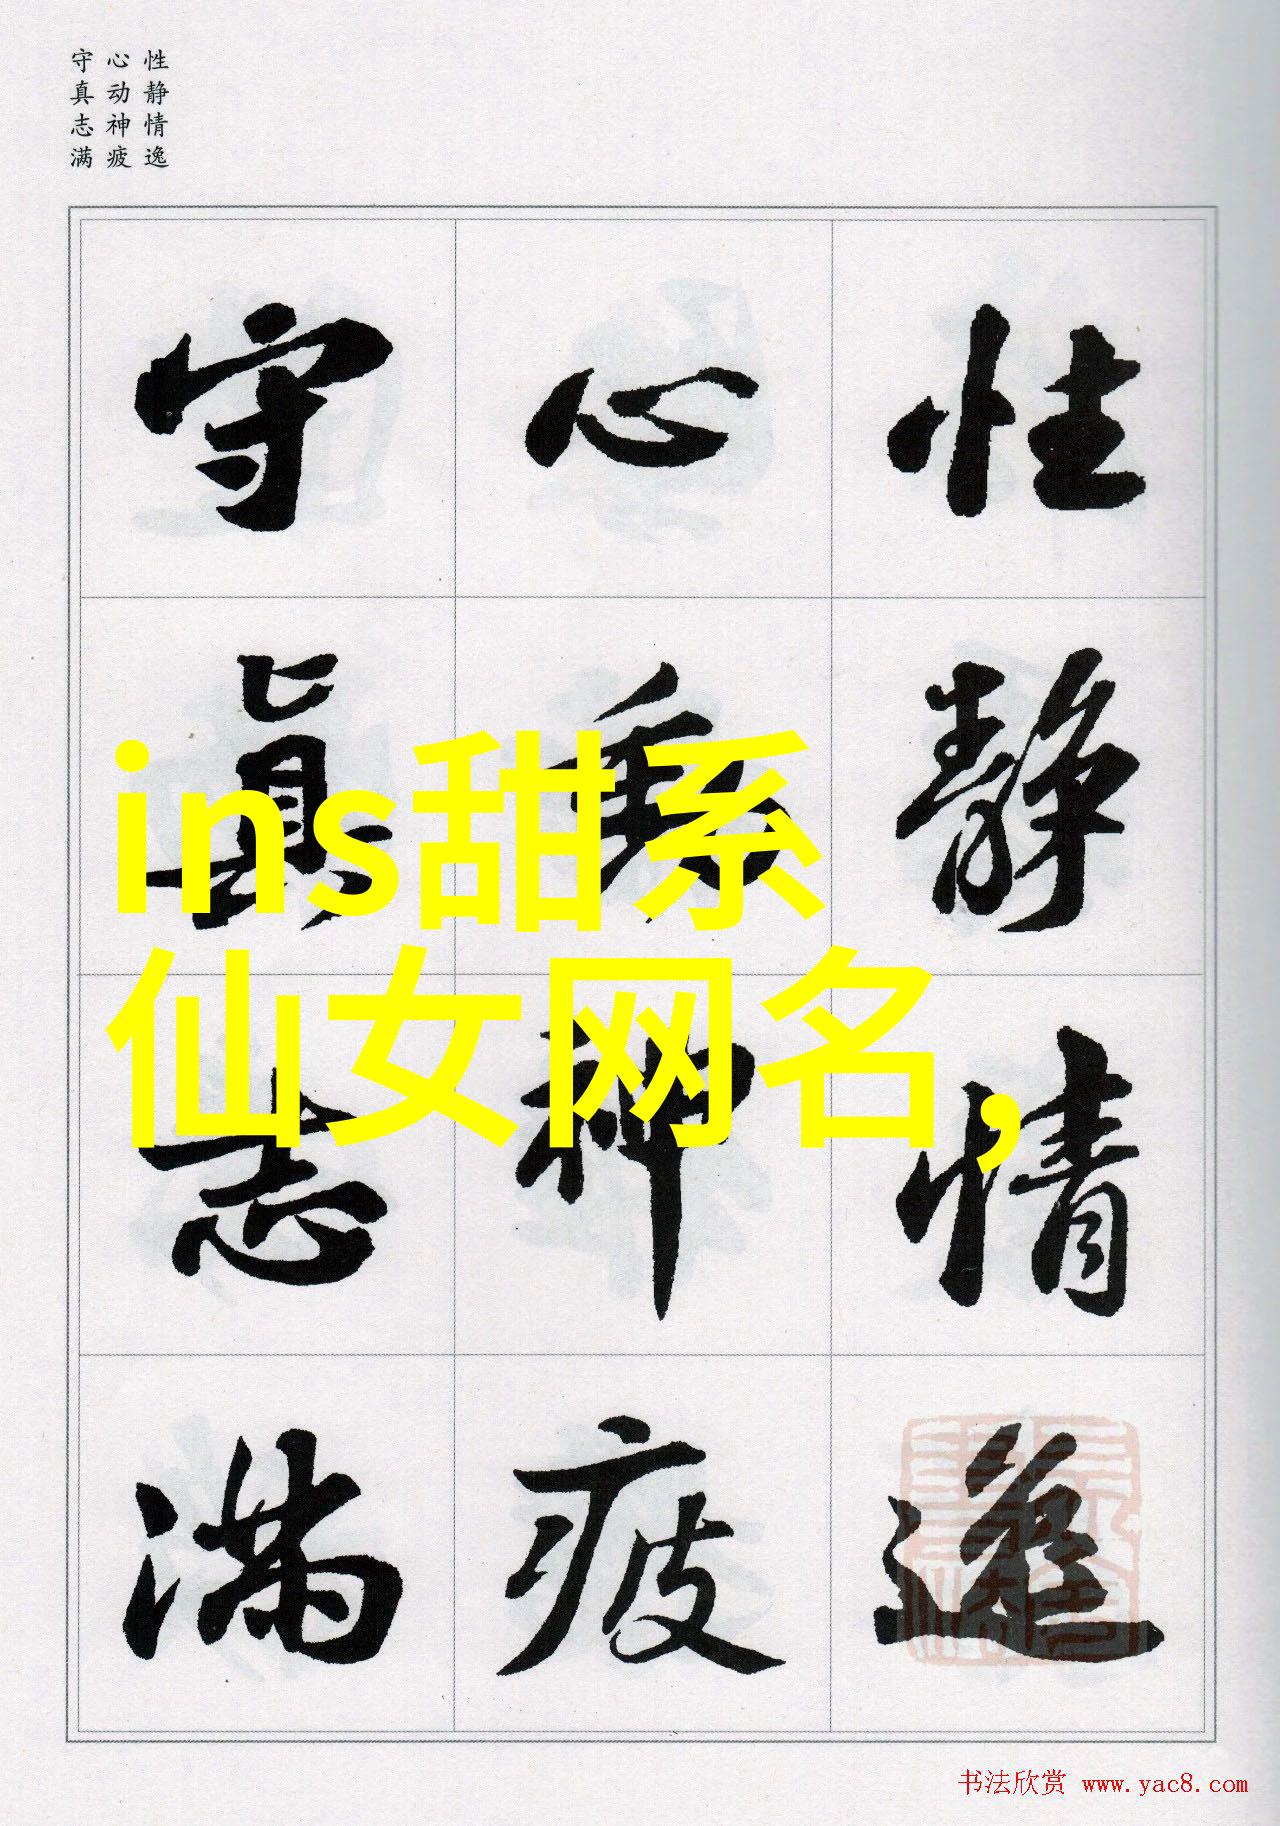 性静情逸
心动神疲
守真志满
性静情逸
心動神疲
守真志满
ins甜系
仙女网名,
书法欣赏 www.yac8.com